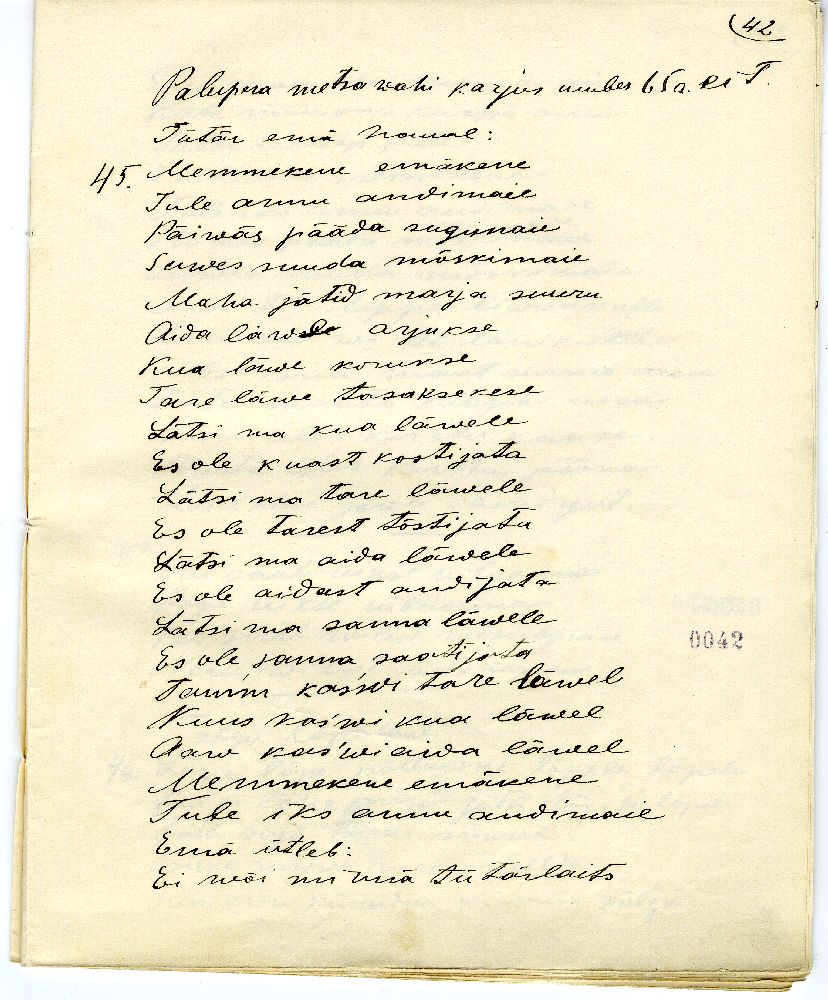 42
Palupera metsawahi karjus umbes 65 a.
Tütär emä haual:
45. Memmekene emäkene
Tule armu andimaie
Päiwäs pääda sugimaie
Suwes suuda mõskimaie
Maha jätid marja suuru
Aida läwele arjukse
Kua läwe korukse
Tare läwe tasaksekese
Lätsi ma kua läwele
Es ole kuast kostijata
Lätsi ma tare läwele
Es ole tarest tõstijatu
Lätsi ma aida läwele
Es ole aidast andijata
Lätsi ma sanna läwele
Es ole sanna saatijata
Tamm kas'wi tare läwel
Kuus kas'wi kua läwel
Aaw kas'wi aida läwel
Memmekene emäkene
Tule iks armu andimaie
Emä ütleb:
Ei wõi minnä tütärlaits
0042